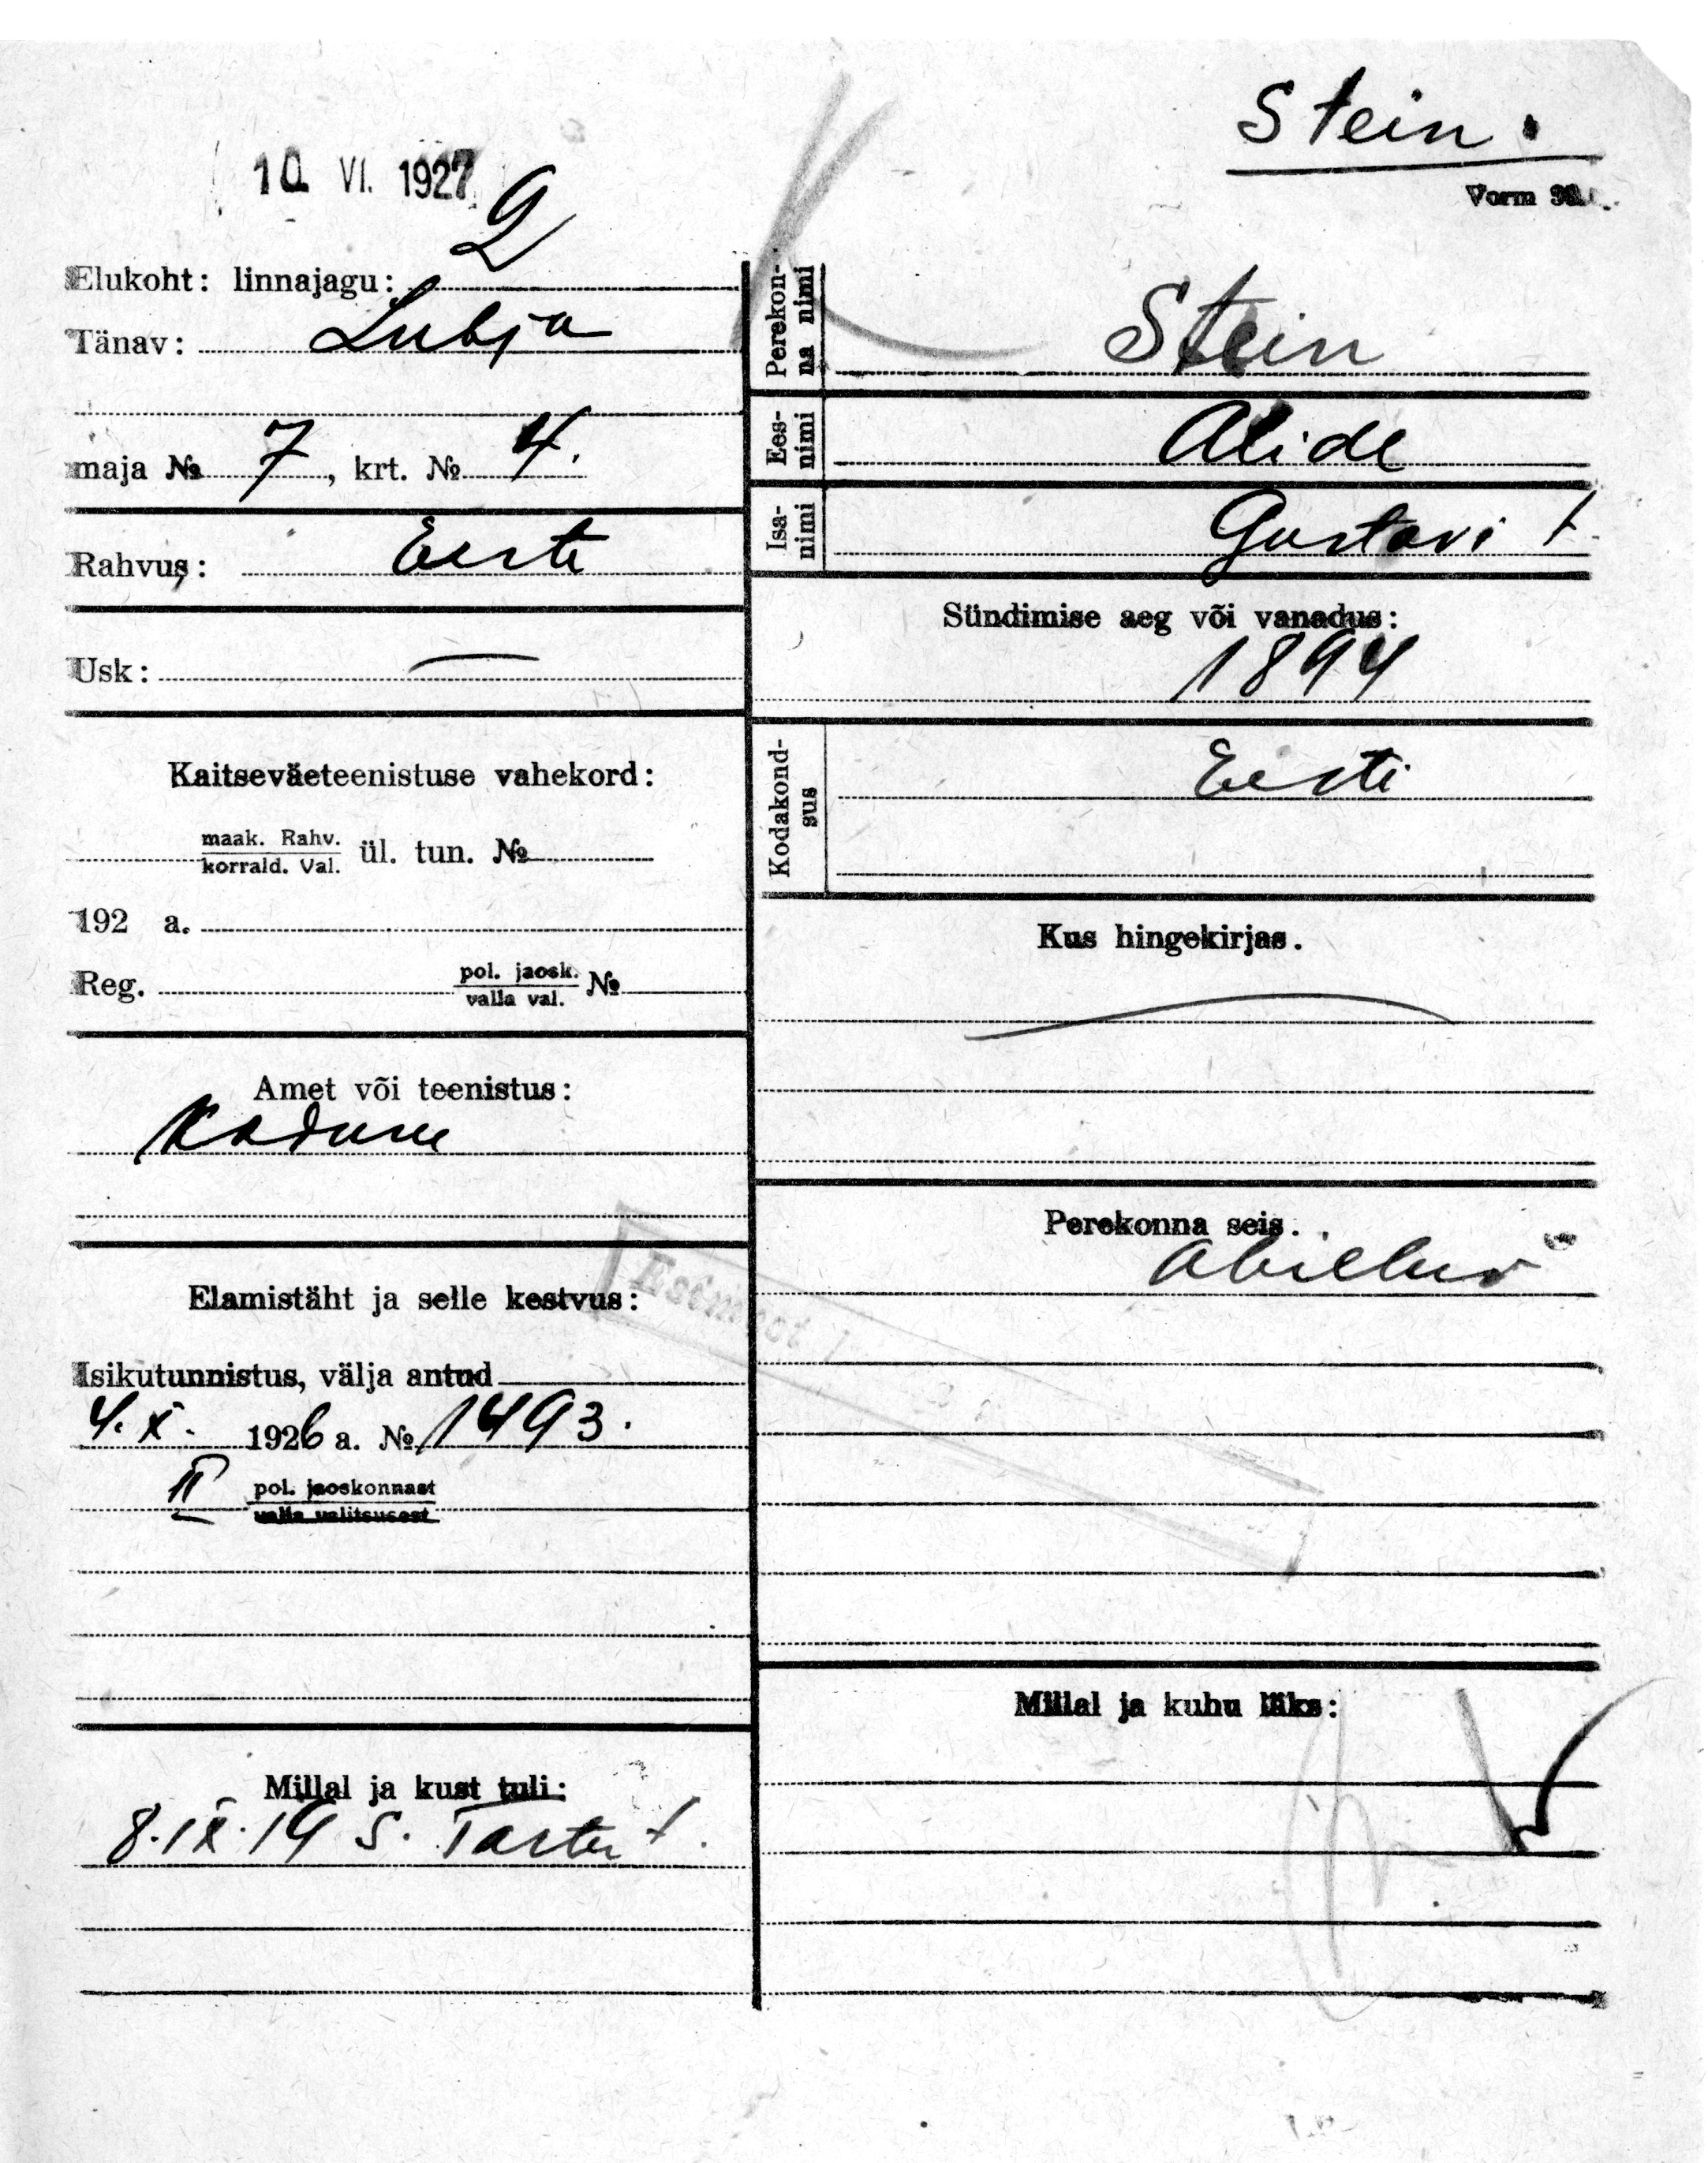 Stein.
10. VI. 1927
Vorm 93
Elukoht: linnajagu: 2
Tänav: Lubja
maja № 7, krt. № 4.
Rahvus: Eesti
Usk: —
Kaitseväeteenistuse vahekord:
maak. Rahv.
korrald. Val. ül. tun. №
192 a.
Reg. pol. jaosk. №
valla val.
Amet või teenistus:
Kodune
Elamistäht ja selle kestvus:
Isikutunnistus, välja antud
4. X. 1926 a. № 1493.
II pol. jaoskonnast
valla valitsusest
Millal ja kust tuli:
8.IX.19 s. Tartu
Perekonna nimi
Stein
Eesnimi
Alide
Isanimi
Gustavi t.
Sündimise aeg või vanadus:
1894
Kodakondsus
Eesti
Kus hingekirjas.
Perekonna seis.
abielus
Millal ja kuhu läks: